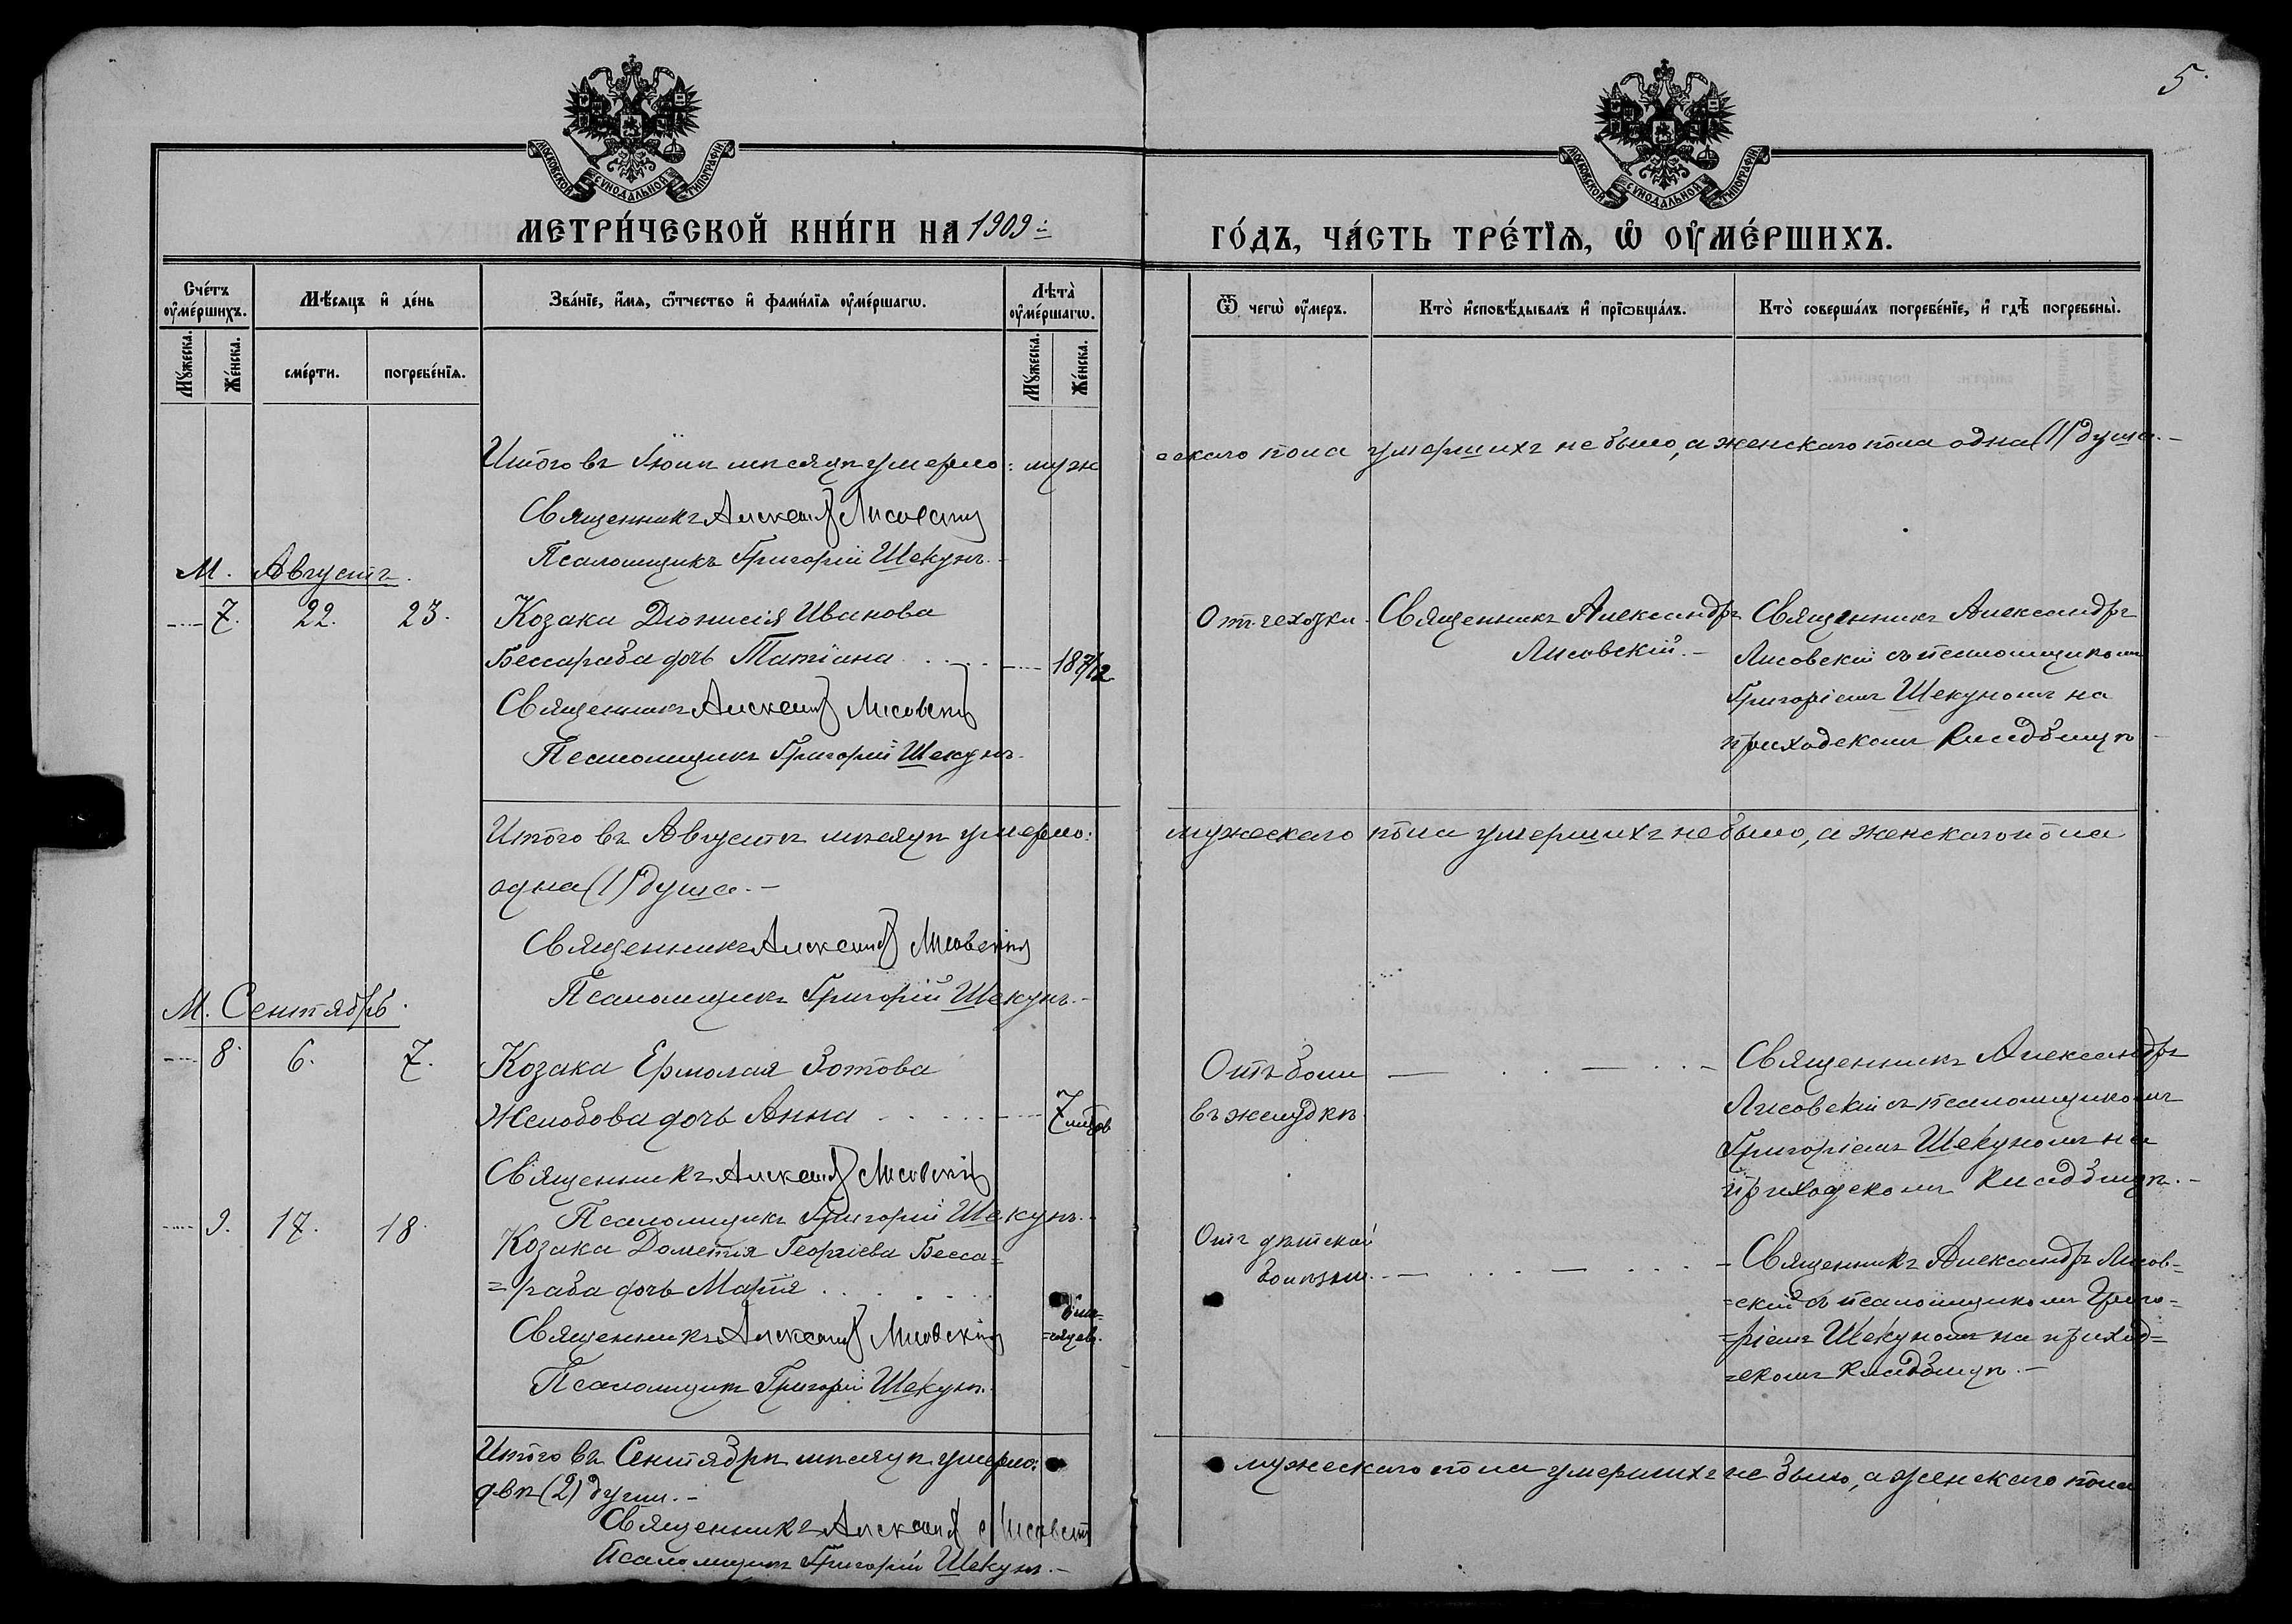 5.
МОСКОВСКОЙ СѴНОДАЛЬНОЙ ТИПОГРАФІИ
МОСКОВСКОЙ СѴНОДАЛЬНОЙ ТИПОГРАФІИ
МЕТРИ́ЧЕСКОЙ КНИ́ГИ НА 1909й
ГО́ДЪ, ЧА́СТЬ ТРЕ́ТЇѦ, Ѡ҆ ОУ҆МЕ́РШИХЪ.
Сче́тъ оу҆ме́ршихъ.
Мѣ́сяцъ и҆ де́нь
Зва́нїе, и҆́мя, ѻ҆́тчество и҆ фами́лїя оу҆ме́ршагѡ.
Лѣ́та оу҆ме́ршагѡ.
Ѿ чегѡ̀ оу҆́меръ.
Кто̀ и҆сповѣ́дывалъ и҆ прїѡбща́лъ.
Кто̀ соверша́лъ погребе́нїе, и҆ гдѣ̀ погребены̀.
Мꙋ́жеска.
Же́нска.
сме́рти.
погребе́нїя.
Мꙋ́жеска.
Же́нска.
Итого въ Іюлѣ мѣсяцѣ умерло: муж
ескаго пола умершихъ не было, а женскаго пола одна (1) душа.–
Священникъ Александръ Лисовскій
Псаломщикъ Григорій Шекунъ.–
М. Августъ.
7. 22. 23. Козака Діонисія Иванова
Бессараба дочь Татіана 18 7/12
Отъ чехотки. Священникъ Александръ
Лисовскій.–
Священникъ Александръ
Лисовскій съ псаломщикомъ
Григоріемъ Шекуномъ на
приходскомъ кладбищѣ
Священникъ Александръ Лисовскій
Псаломщикъ Григорій Шекунъ.
Итого въ Августѣ мѣсяцѣ умерло:
мужескаго пола умершихъ не было, а женскаго пола
одна (1) душа.–
Священникъ Александръ Лисовскій
Псаломщикъ Григорій Шекунъ.–
М. Сентябрь.
8. 6. 7. Козака Ермолая Зотова
Желобова дочь Анна 7
Отъ боли
въ желудкѣ
Священникъ Александръ
Лисовскій съ псаломщикомъ
Григоріемъ Шекуномъ на
приходскомъ кладбищѣ.–
Священникъ Александръ Лисовскій
Псаломщикъ Григорій Шекунъ.
9. 17. 18. Козака Дометія Георгіева Бесса=
=раба дочь Марія
=сяцев.
Отъ дѣтской
болѣзни.
Священникъ Александръ Лисов=
=скій съ псаломщикомъ Григо=
=ріемъ Шекуномъ на приход=
=скомъ кладбищѣ.–
Священникъ Александръ Лисовскій
Псаломщикъ Григорій Шекунъ.
Итого въ Сентябрѣ мѣсяцѣ умерло:
мужескаго пола умершихъ не было, а женскаго пола
двѣ (2) души.–
Священникъ Александръ Лисовскій
Псаломщикъ Григорій Шекунъ.–